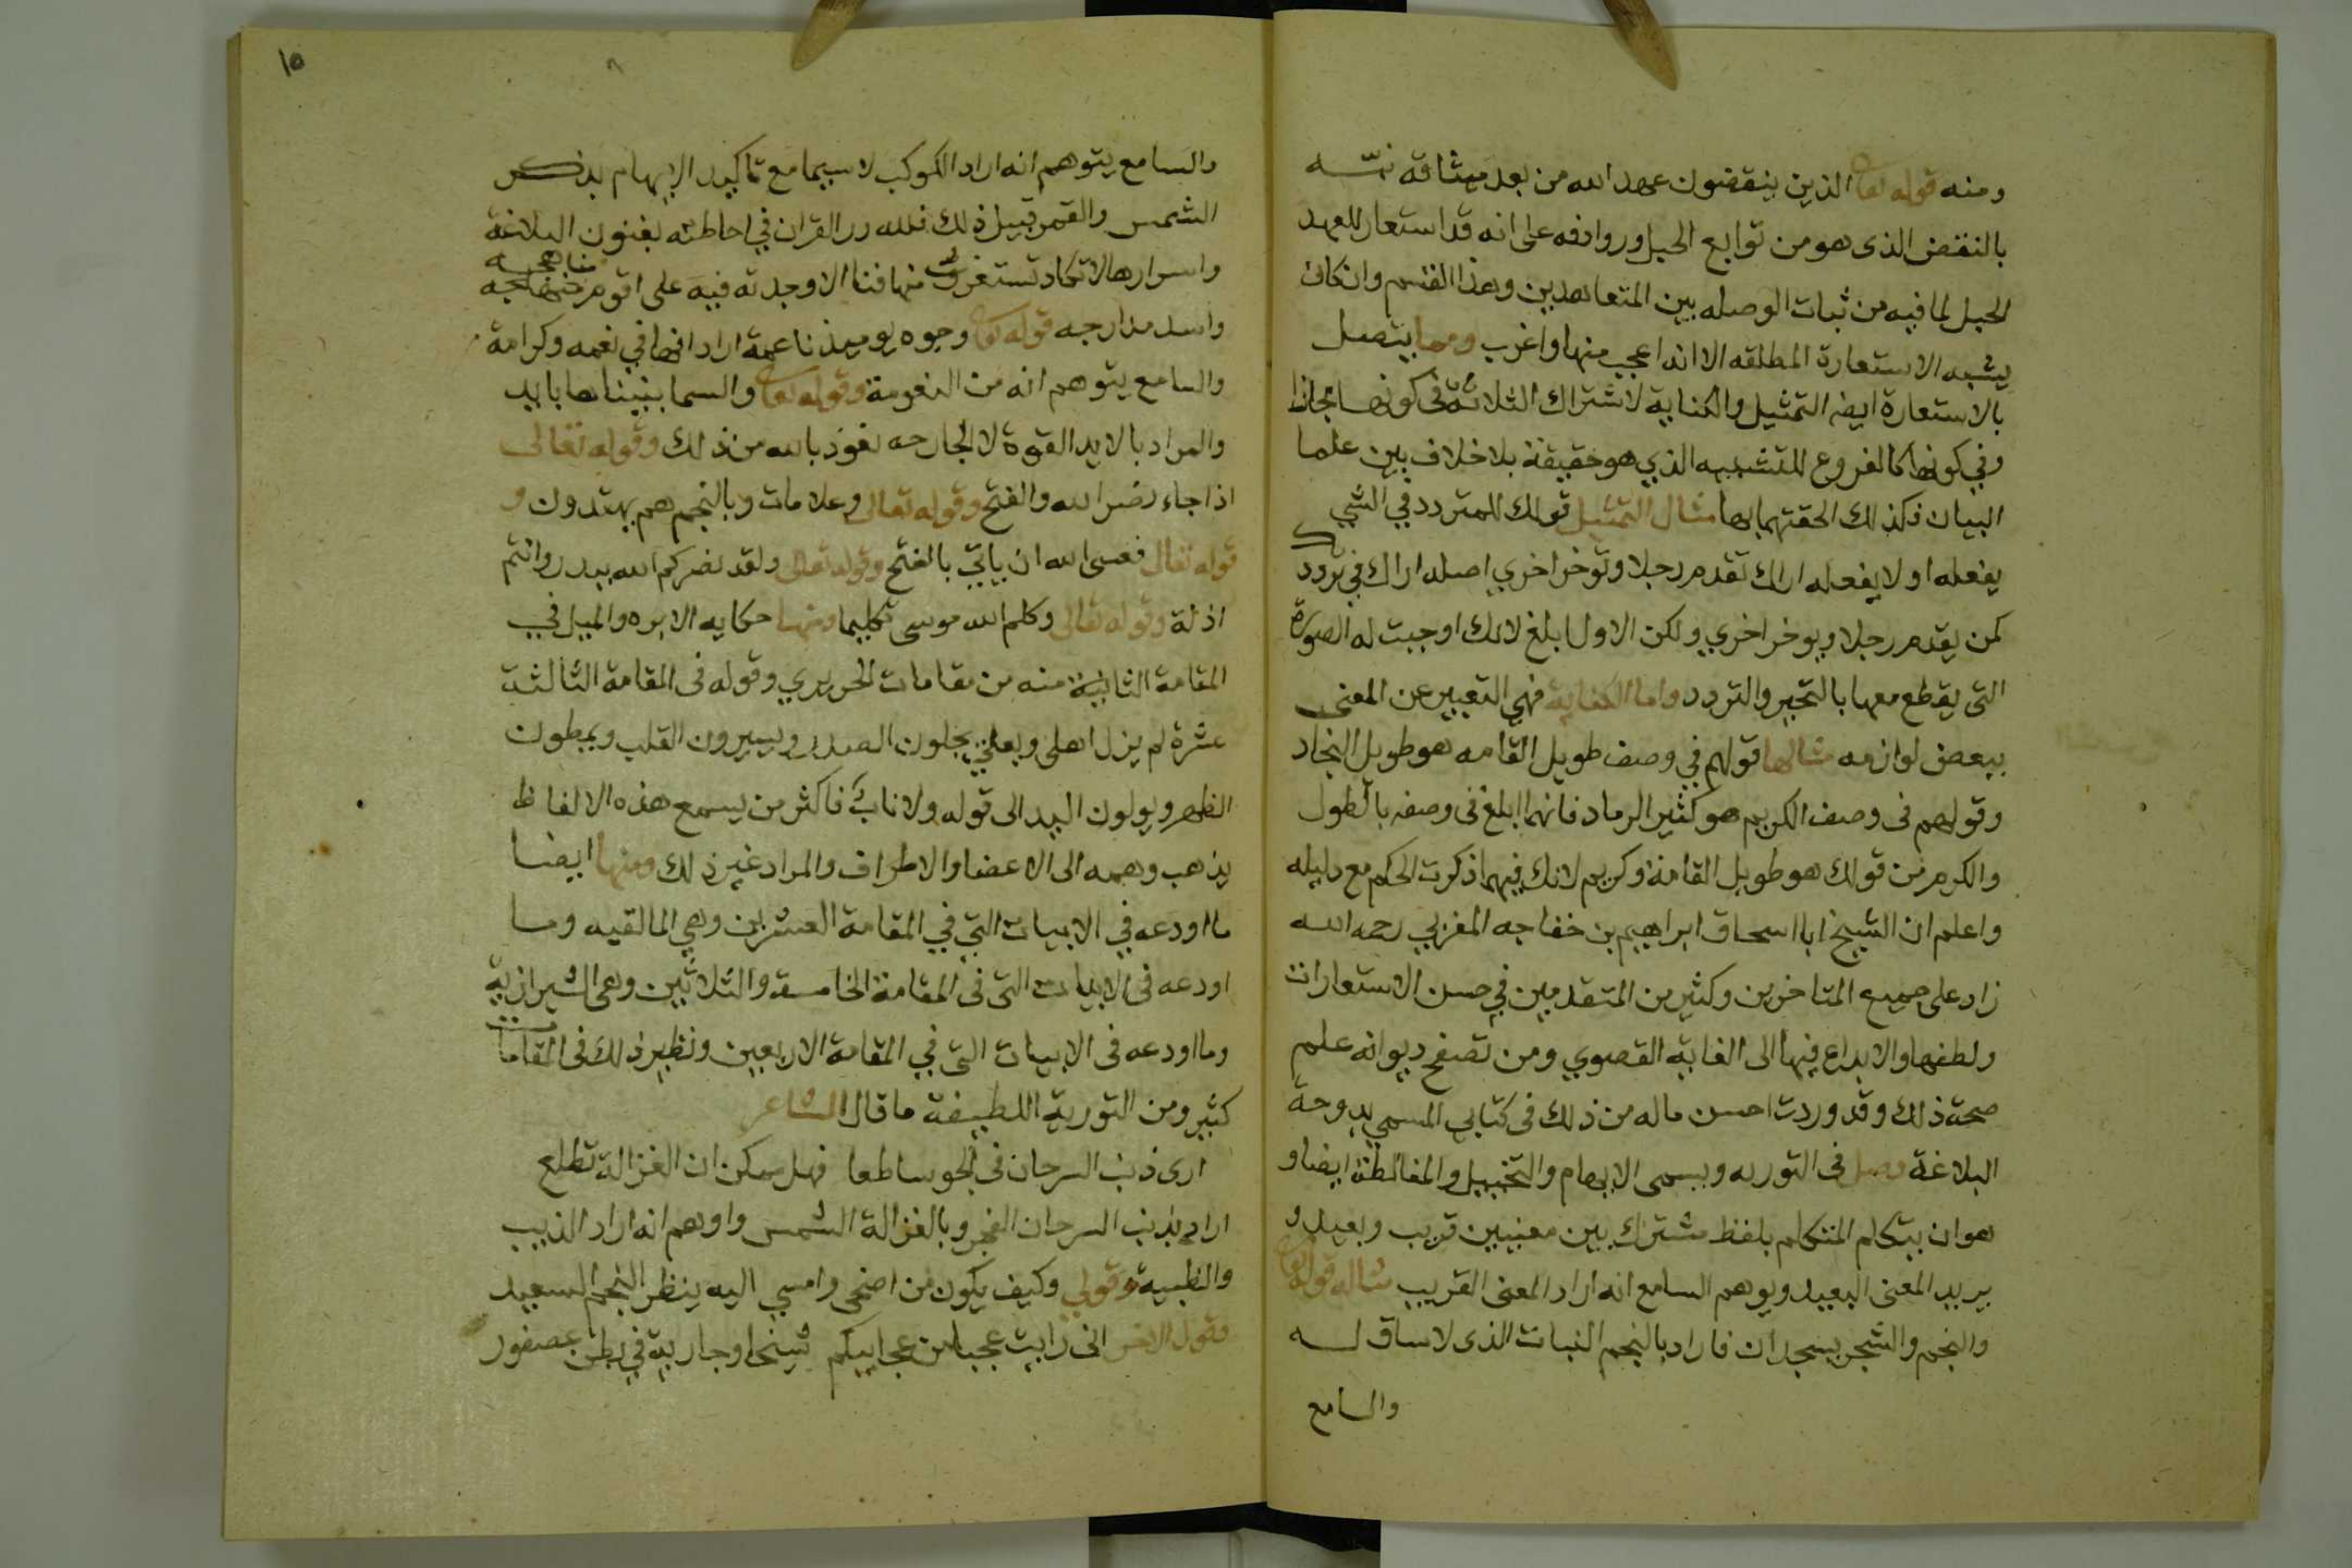 ومنه قوله تعا الذين ينقضون عهد الله من بعد ميثاقه نبّه
بالنقض الذى هو من توابع الحبل وروادفه على انه قد استعار للعهد
الحبل لما فيه من ثبات الوصله بين المتعاهدين وهذا القسم وان كان
يشبه الاستعارة المطلقه الا انه اعجب منها واغرب ومما يتصل
بالاستعارة ايضا التمثيل والكناية لاشتراك الثلاثة فى كونها مجازا
وفي كونها كالفروع للتشبيه الذي هو حقيقة بلا خلاف بين علما
البيان فكذلك الحقتهما بها مثال التمثيل قولك للمتردد في الشي
يفعله او لا يفعله اراك تقدم رجلا وتوخر اخري اصله اراك في ترددك
كمن يقدم رجلا ويوخر اخري ولكن الاول ابلغ لانك اوجبت له الصورة
التى يقطع معها بالتحير والتردد واما الكناية فهي التعبير عن المعنى
ببعض لوازمه مثالها قولهم في وصف طويل القامه هو طويل النجاد
وقولهم فى وصف الكريم هو كثير الرماد فانهما ابلغ فى وصفه بالطول
والكرم من قولك هو طويل القامة وكريم لانك فيهما ذكرت الحكم مع دليله
واعلم ان الشيخ ابا اسحاق ابراهيم بن خفاجه المغربي رحمه الله
زاد على جميع المتاخرين وكثير من المتقدمين في حسن الاستعارات
ولطفها والابداع فيها الى الغاية القصوي ومن تصفح ديوانه علم
صحة ذلك وقد وردت احسن ماله من ذلك فى كتابي المسمي بدوحة
البلاغة فصل فى التوريه ويسمى الايهام والتخييل والمغالطة ايضا و
هو ان يتكلم المتكلم بلفظ مشترك بين معنيين قريب وبعيد و
يريد المعنى البعيد ويوهم السامع انه اراد المعنى القريب مثاله قوله تعا
والنجم والشجر يسجدان فاراد بالنجم النبات الذى لا ساق له
والسامع
١٥
والسامع يتوهم انه اراد الكوكب لا سيما مع تاكيد الايهام بذكر
الشمس والقمر قبيل ذلك فلله در القران في احاطته بفنون البلاغة
واسرارها لا تكاد تستغرق منها فنا الا وجدته فيه على اقوم مناهجه
واسد مدارجه قوله تعا وجوه يوميذ ناعمة اراد انها في نعمه وكرامة
والسامع يتوهم انه من النعومة وقوله تعا والسما بنيناها بايد
والمراد بالايد القوة لا الجارحه نعوذ بالله من ذلك وقوله تعالى
اذا جاء نصر الله والفتح وقوله تعالى وعلامات وبالنجم هم يهتدون و
قوله تعالى فعسى الله ان ياتي بالفتح وقوله تعالى ولقد نصركم الله ببدر وانتم
اذلة وقوله تعالى وكلم الله موسى تكليما ومنها حكايه الابره والميل في
المقامة الثانية منه من مقامات الحريري وقوله فى المقامة الثالثة
عشرة لم يزل اهلى وبعلي يحلون الصدر ويسيرون القلب ويمطون
الظهر ويولون اليد الى قوله ولا ناب فاكثر من يسمع هذه الالفاظ
يذهب وهمه الى الاعضا والاطراف والمراد غير ذلك ومنها ايضا
ما اودعه في الابيات التي في المقامة العشرين وهي المالقيه وما
اودعه فى الابيات التى فى المقامة الخامسة والثلاثين وهى الشيرازية
وما اودعه فى الابيات التى في المقامة الاربعين ونظير ذلك فى المقامات
كثير ومن التورية اللطيفة ما قال الشاعر
ارى ذنب السرحان فى الجو ساطعا فهل ممكن ان الغزالة تطلع
اراد بذنب السرحان الفجر وبالغزالة الشمس واوهم انه اراد الذيب
والظبية وقولي وكيف يكون من اضحى وامسي اليه ينظر النجم السعيد
وقول الاخر انى رايت عجيبا من عجايبكم شيخا وجارية في بطن عصفور